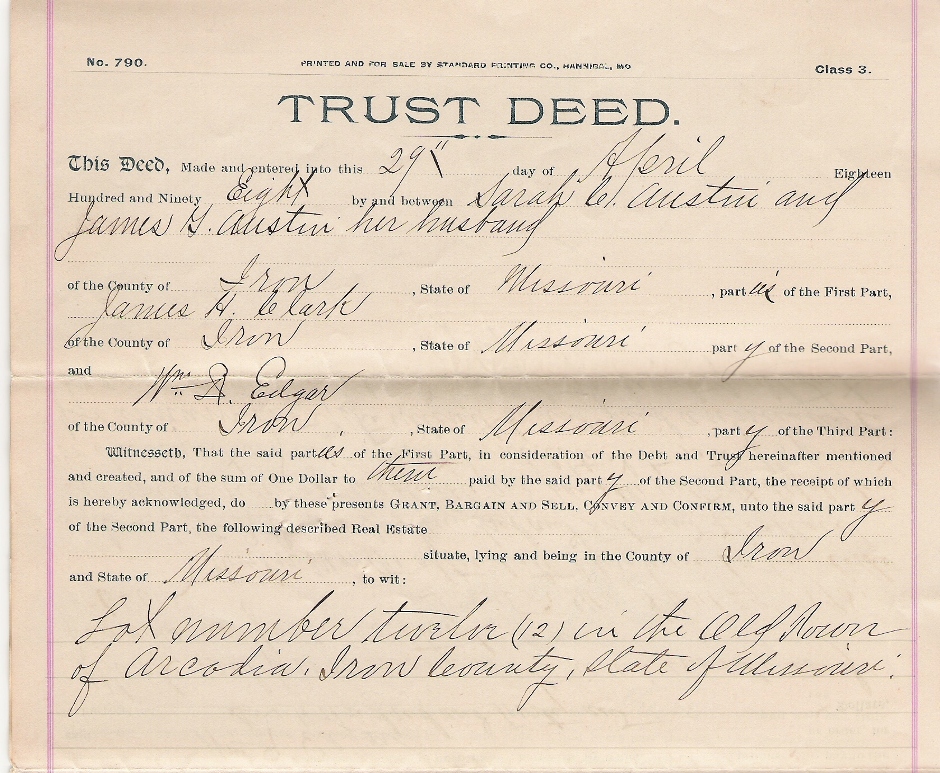 No. 790. PRINTED AND FOR SALE BY STANDARD PRINTING CO., HANNIBAL, MO Class 3.
TRUST DEED.
This Deed, Made and entered into this 29" day of April Eighteen
Hundred and Ninety Eight by and between Sarah C. Austin and
James G. Austin her husband
of the County of Iron, State of Missouri, part ies of the First Part,
James H. Clark
of the County of Iron, State of Missouri part y of the Second Part,
and
Wm R. Edgar
of the County of Iron, State of Missouri, part y of the Third Part:
Witnesseth, That the said part ies of the First Part, in consideration of the Debt and Trust hereinafter mentioned
and created, and of the sum of One Dollar to them paid by the said part y of the Second Part, the receipt of which
is hereby acknowledged, do by these presents GRANT, BARGAIN AND SELL, CONVEY AND CONFIRM, unto the said part y
of the Second Part, the following described Real Estate
situate, lying and being in the County of Iron
and State of Missouri, to wit:
Lot number twelve (12) in the Old Town
of Arcadia, Iron County, State of Missouri.